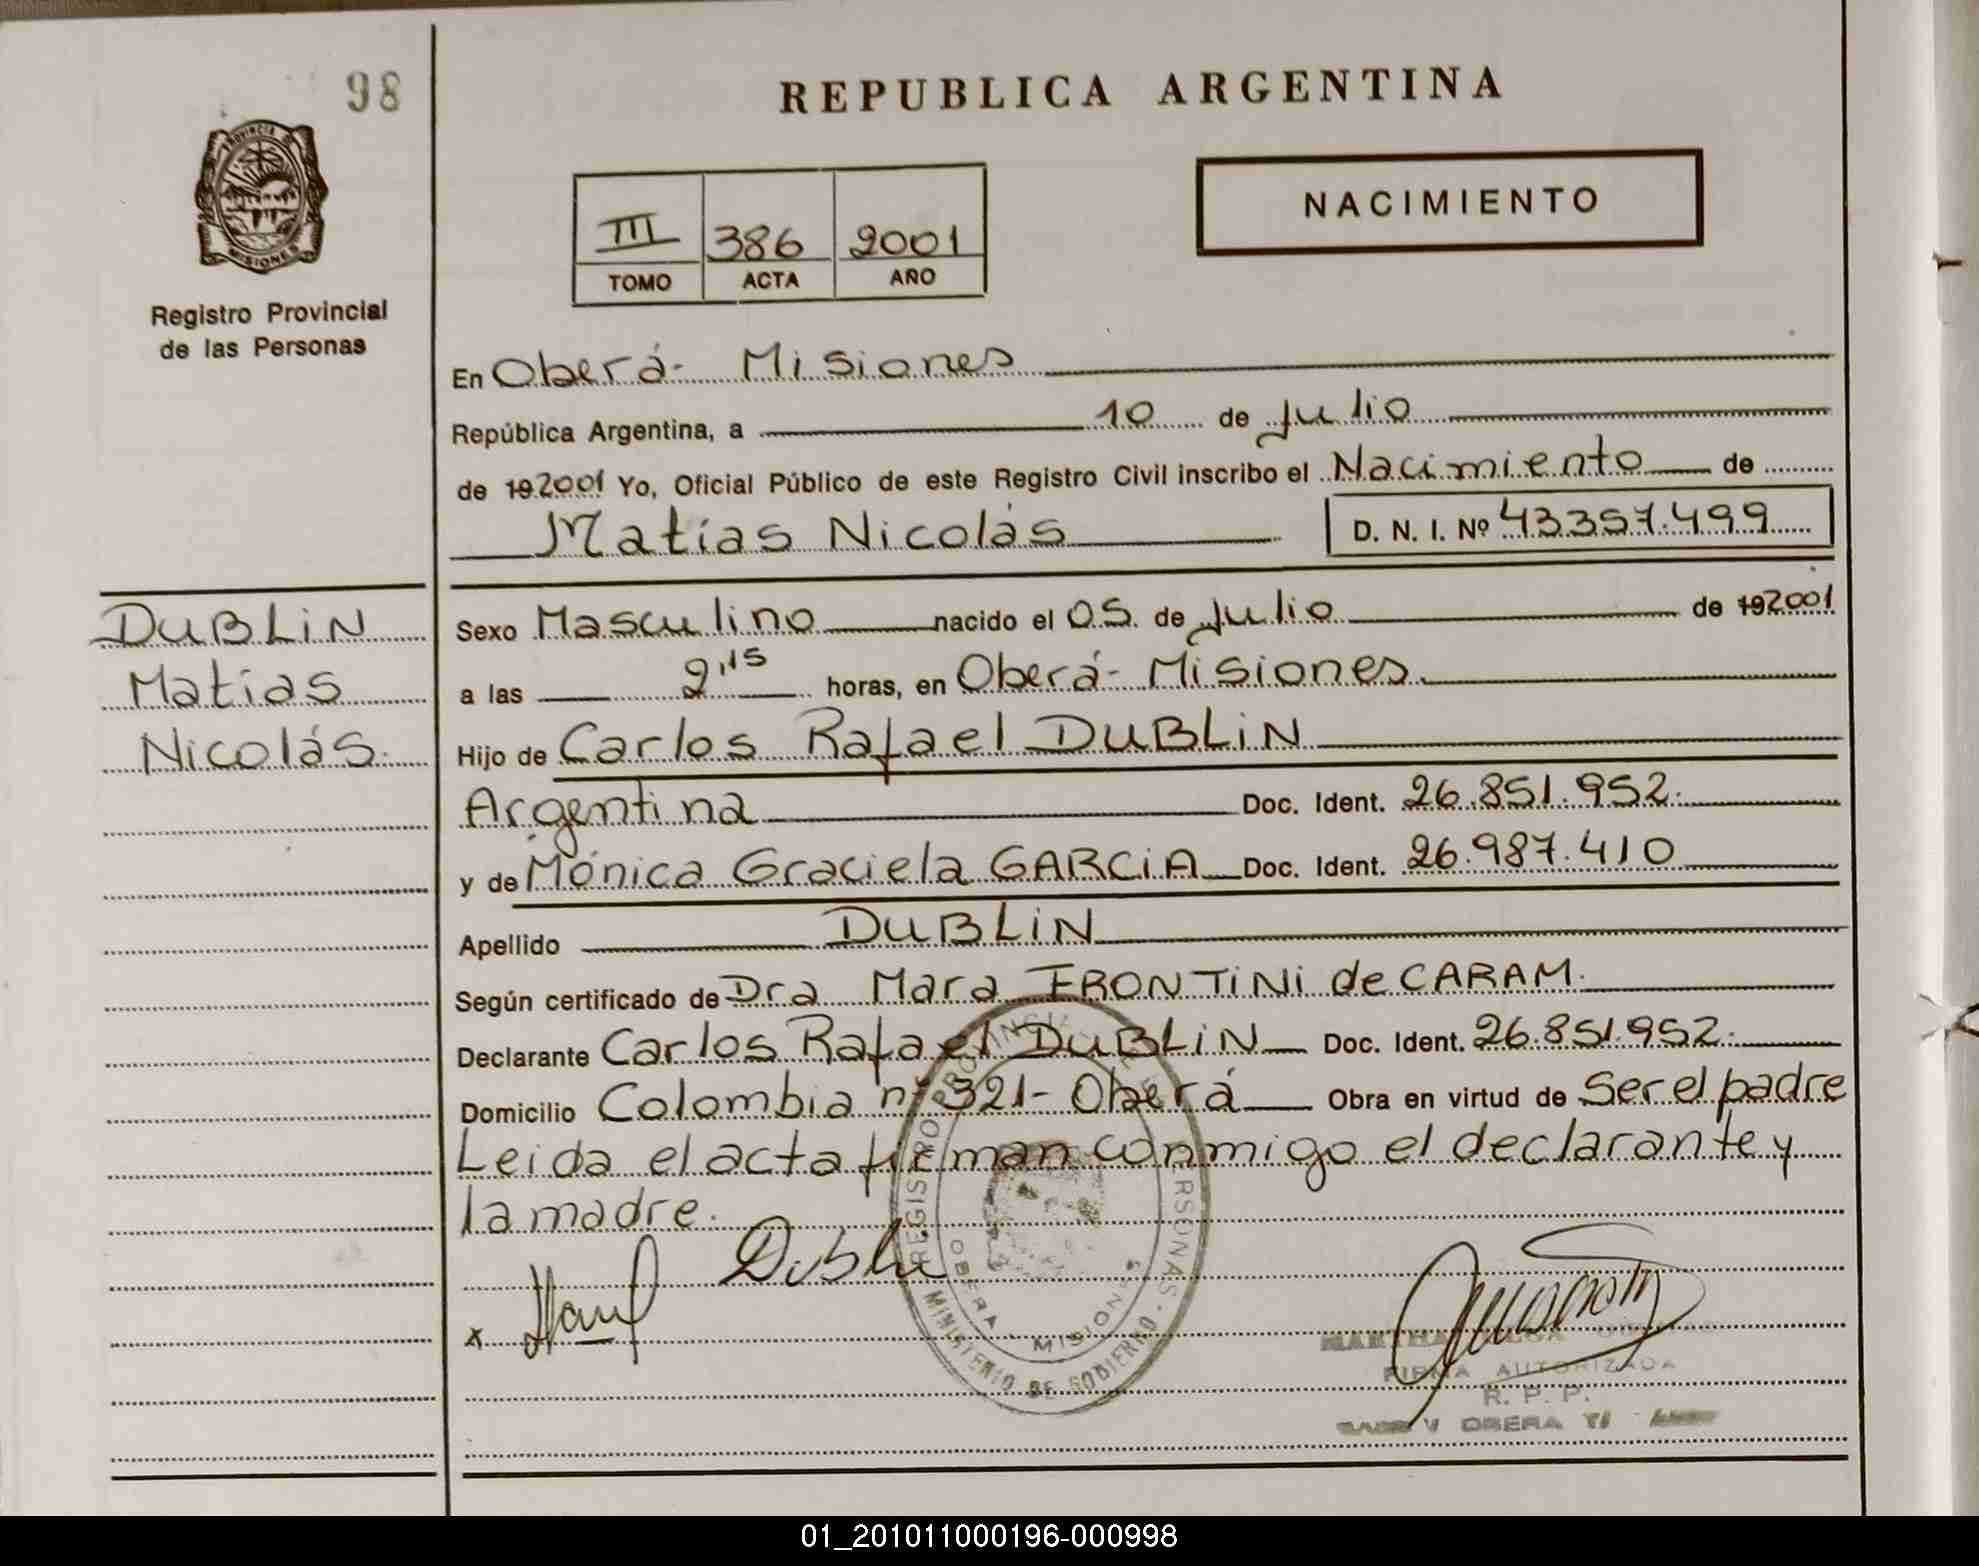 98
REPUBLICA ARGENTINA
PROVINCIA D
MISIONES
Registro Provincial
de las Personas
III 386 2001
TOMO ACTA AÑO
NACIMIENTO
En Oberá- Misiones
República Argentina, a 10 de Julio
de 192001 Yo, Oficial Público de este Registro Civil inscribo el Nacimiento de
Matías Nicolás D. N. I. Nº 43.357.499
DUBLIN
Matías
Nicolás.
Sexo Masculino nacido el 05. de Julio de 192001
a las 2,15 horas, en Oberá- Misiones.
Hijo de Carlos Rafael DUBLIN
Argentina Doc. Ident. 26.851.952.
y de Mónica Graciela GARCIA Doc. Ident. 26.987.410
Apellido DUBLIN
Según certificado de Dra Mara FRONTINI de CARAM.
Declarante Carlos Rafael DUBLIN Doc. Ident. 26.851.952.
Domicilio Colombia nº 321- Oberá Obra en virtud de Ser el padre
Leida el acta firman conmigo el declarante y
la madre.
x
REGISTRO PROVINCIAL DE PERSONAS
OBERA MISIONES
MINISTERIO DE GOBIERNO
MARTHA
FIRMA AUTORIZADA
R. P. P.
OBERA
01_201011000196-000998